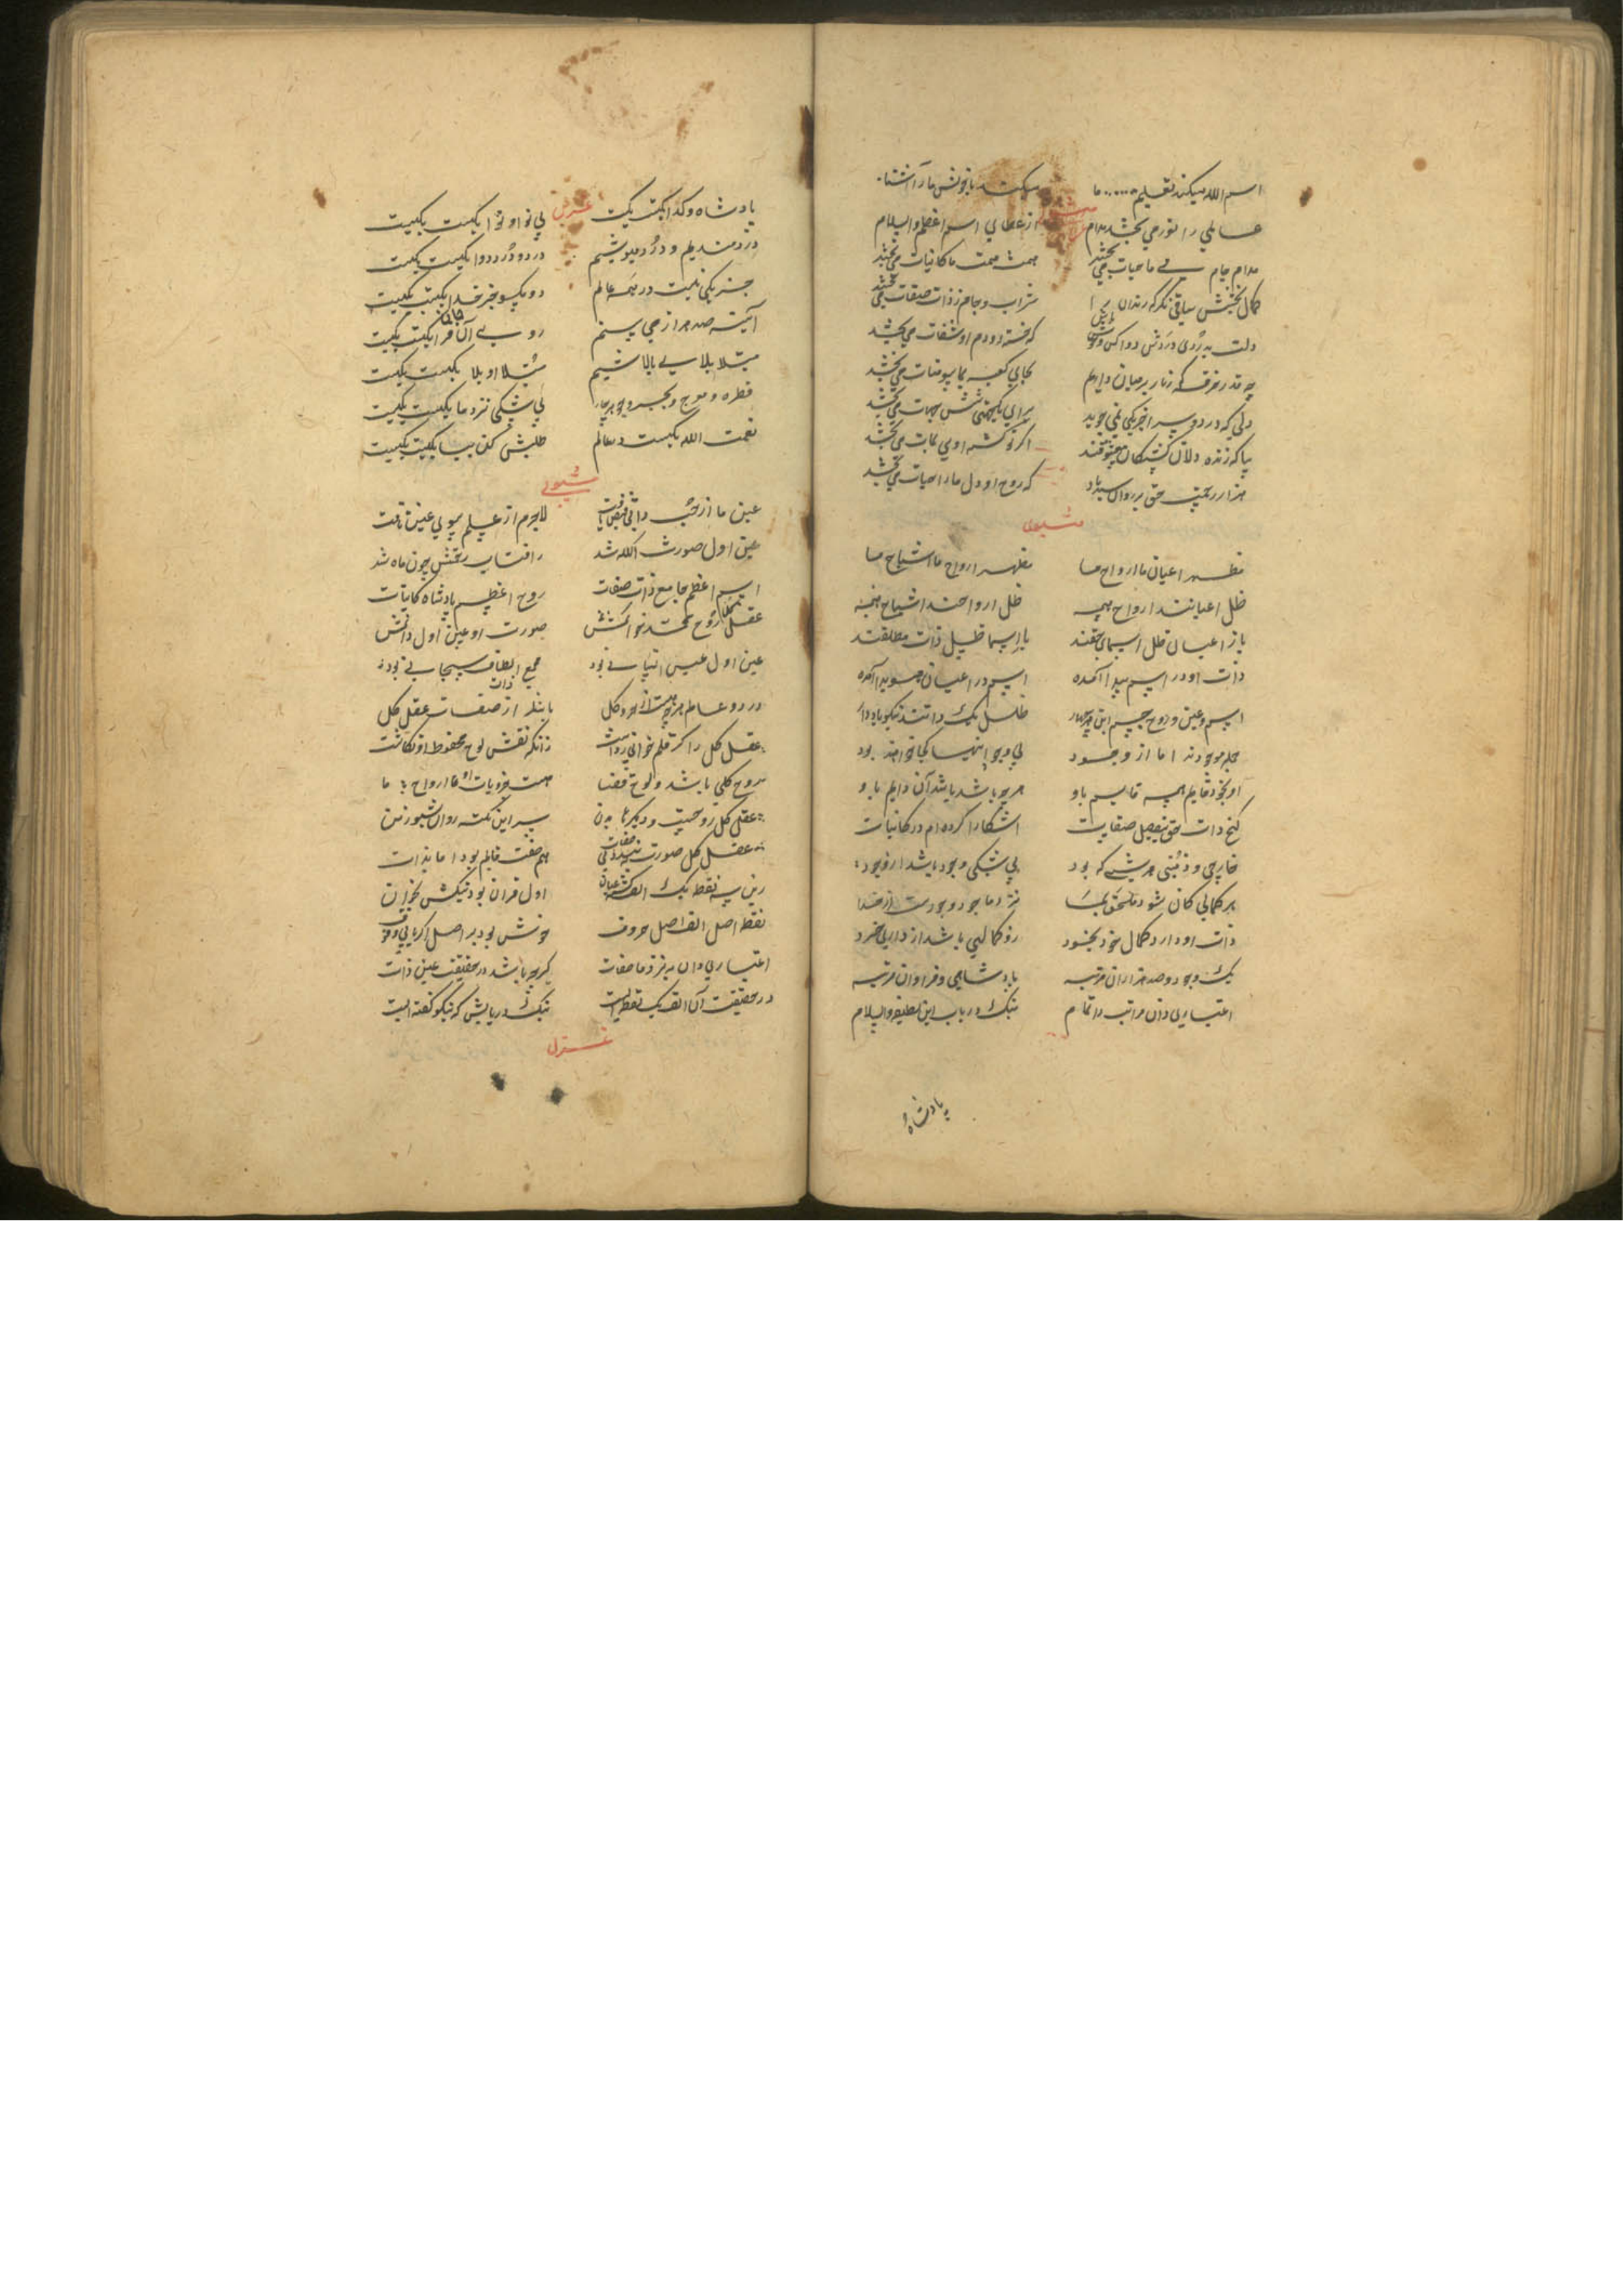 اسم الله میکند تعلیم ما میکند با خویش ما را آشنا
عالمی را نور می بخشد مدام از عطای اسم اعظم والسلام
مدام جام می ما حیات می بخشد همت ما کائنات می بخشد
کمال بخشش ساقی نگر که رندان را شراب و جام ز ذات و صفات می بخشد
دلت به دردی دردش دوا کن که خسته را دم او شفات می بخشد
چه قدر خرقه که زنار بر میان داریم بجای کعبه بما سومنات می بخشد
دلی که در دو سرا جز یکی نمی جوید برای یکجهتی شش جهات می بخشد
بیا که زنده دلان کشتگان معشوقند اگر تو کشته اوی نجات می بخشد
هزار رحمت حق بر روان سید باد که روح او دل ما را حیات می بخشد
مثنوی
مظهر اعیان ما ارواح ما مظهر ارواح ما اشباح ما
ظل اعیانند ارواح همه ظل ارواحند اشباح همه
باز اعیان ظل اسمای حقند باز اسما ظل ذات مطلقند
ذات او در اسم پیدا آمده اسم در اعیان هویدا آمده
اسم و عین و روح جسم این هر چهار ظل یک ذاتند نیکو یاد دار
جمله موجودند اما از وجود بی وجود اینها کجا خواهند بود
او بخود قایم همه قایم باو هرچه باشد باشد آن دایم باو
گنج ذات حق بتفصیل صفات آشکارا کرده ام در کائنات
خارجی و ذهنی هر شی که بود بی شکی وجود باشد از وجود
هر کمالی کان شود ملحق بما نزد ما جود وجودست از خدا
ذات او دارد کمال خود بخود رو کمالی باشد از داری خرد
یک وجود و صد هزاران مرتبه پادشاهی و فراوان مرتبه
اعتباری دان مراتب را تمام نیک دریاب این لطیفه والسلام
پادشاه
غزل
پادشاه و گدا یکیست یکیست بی نوا و نوا یکیست یکیست
دردمندیم و درد می نوشیم درد و درد و دوا یکیست یکیست
جز یکی نیست در همه عالم دو مگو جز خدا یکیست یکیست
آینه صد هزار می بینم روی آن جانفزا یکیست یکیست
مبتلای بلای بالاشیم مبتلا و بلا یکیست یکیست
قطره و موج و بحر و جوهر چار بی شکی نزد ما یکیست یکیست
نعمت الله یکیست در عالم طلبش کن بیا یکیست یکیست
مثنوی
عین ما از حب ذاتی فیض یافت لاجرم از علم سوی عین تافت
عین اول صورت الله شد رافتاب رحمتش چون ماه شد
اسم اعظم جامع ذات و صفات روح اعظم پادشاه کائنات
عقل کل روح محمد خوانمش صورت او عین اول دانمش
عین اول عیس انسانی بود مجمع الطاف سبحانی بود
در دو عالم هرچه هست از جزو کل باشد از ذات و صفات عقل کل
عقل کل را گر قلم خوانی رواست زانکه نقش لوح محفوظ او نگاشت
روح کلی باشد و لوح قضا هست جزویات او ارواح ما
عقل کل روحست و دیگرها بدن سر این نکته روان بشنو ز من
عقل کل صورت ببندد بی صفات هم صفت قایم بود اما بذات
زین سه نقطه یک الف گشته عیان اول قرآن بود نیکش بخوان
نقطه اصل الف اصل حروف خوش بود بر اصل اگر یابی وقوف
اعتباری دان به نزد ما صفات گرچه باشد در حقیقت عین ذات
در حقیقت آن الف یک نقطه ایست نیک دریابش که نیکو گفته ایست
غزل